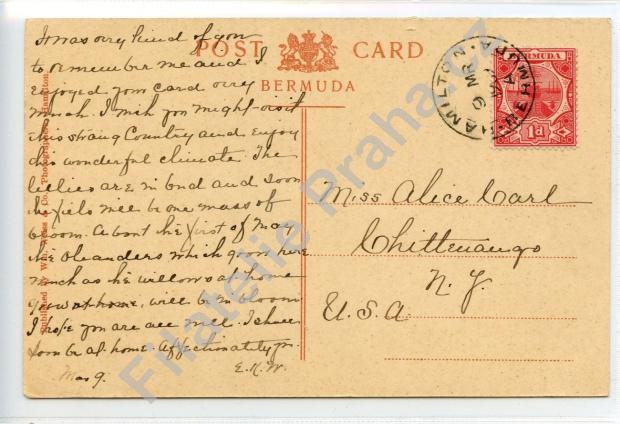 POST CARD
BERMUDA
It was very kind of you
to remember me and I
enjoyed your card very
much. I wish you might visit
this strang Country and enjoy
this wonderful climate. The
lillies are in bud and soon
the fields will be one mass of
bloom. About the first of May
the Oleanders which grow here
much as the willows at home
grow at home, will be in bloom
I hope you are all well. I shall
soon be at home. Affectionately yrs.
E.K.W.
Mar 9.
Published by Weiss & Co. Photographers, Hamilton,
HAMILTON
BERMUDA
9 MR
BERMUDA
1d
Miss Alice Carl
Chittenango
N. Y.
U.S.A
Filatelie Praha.cz